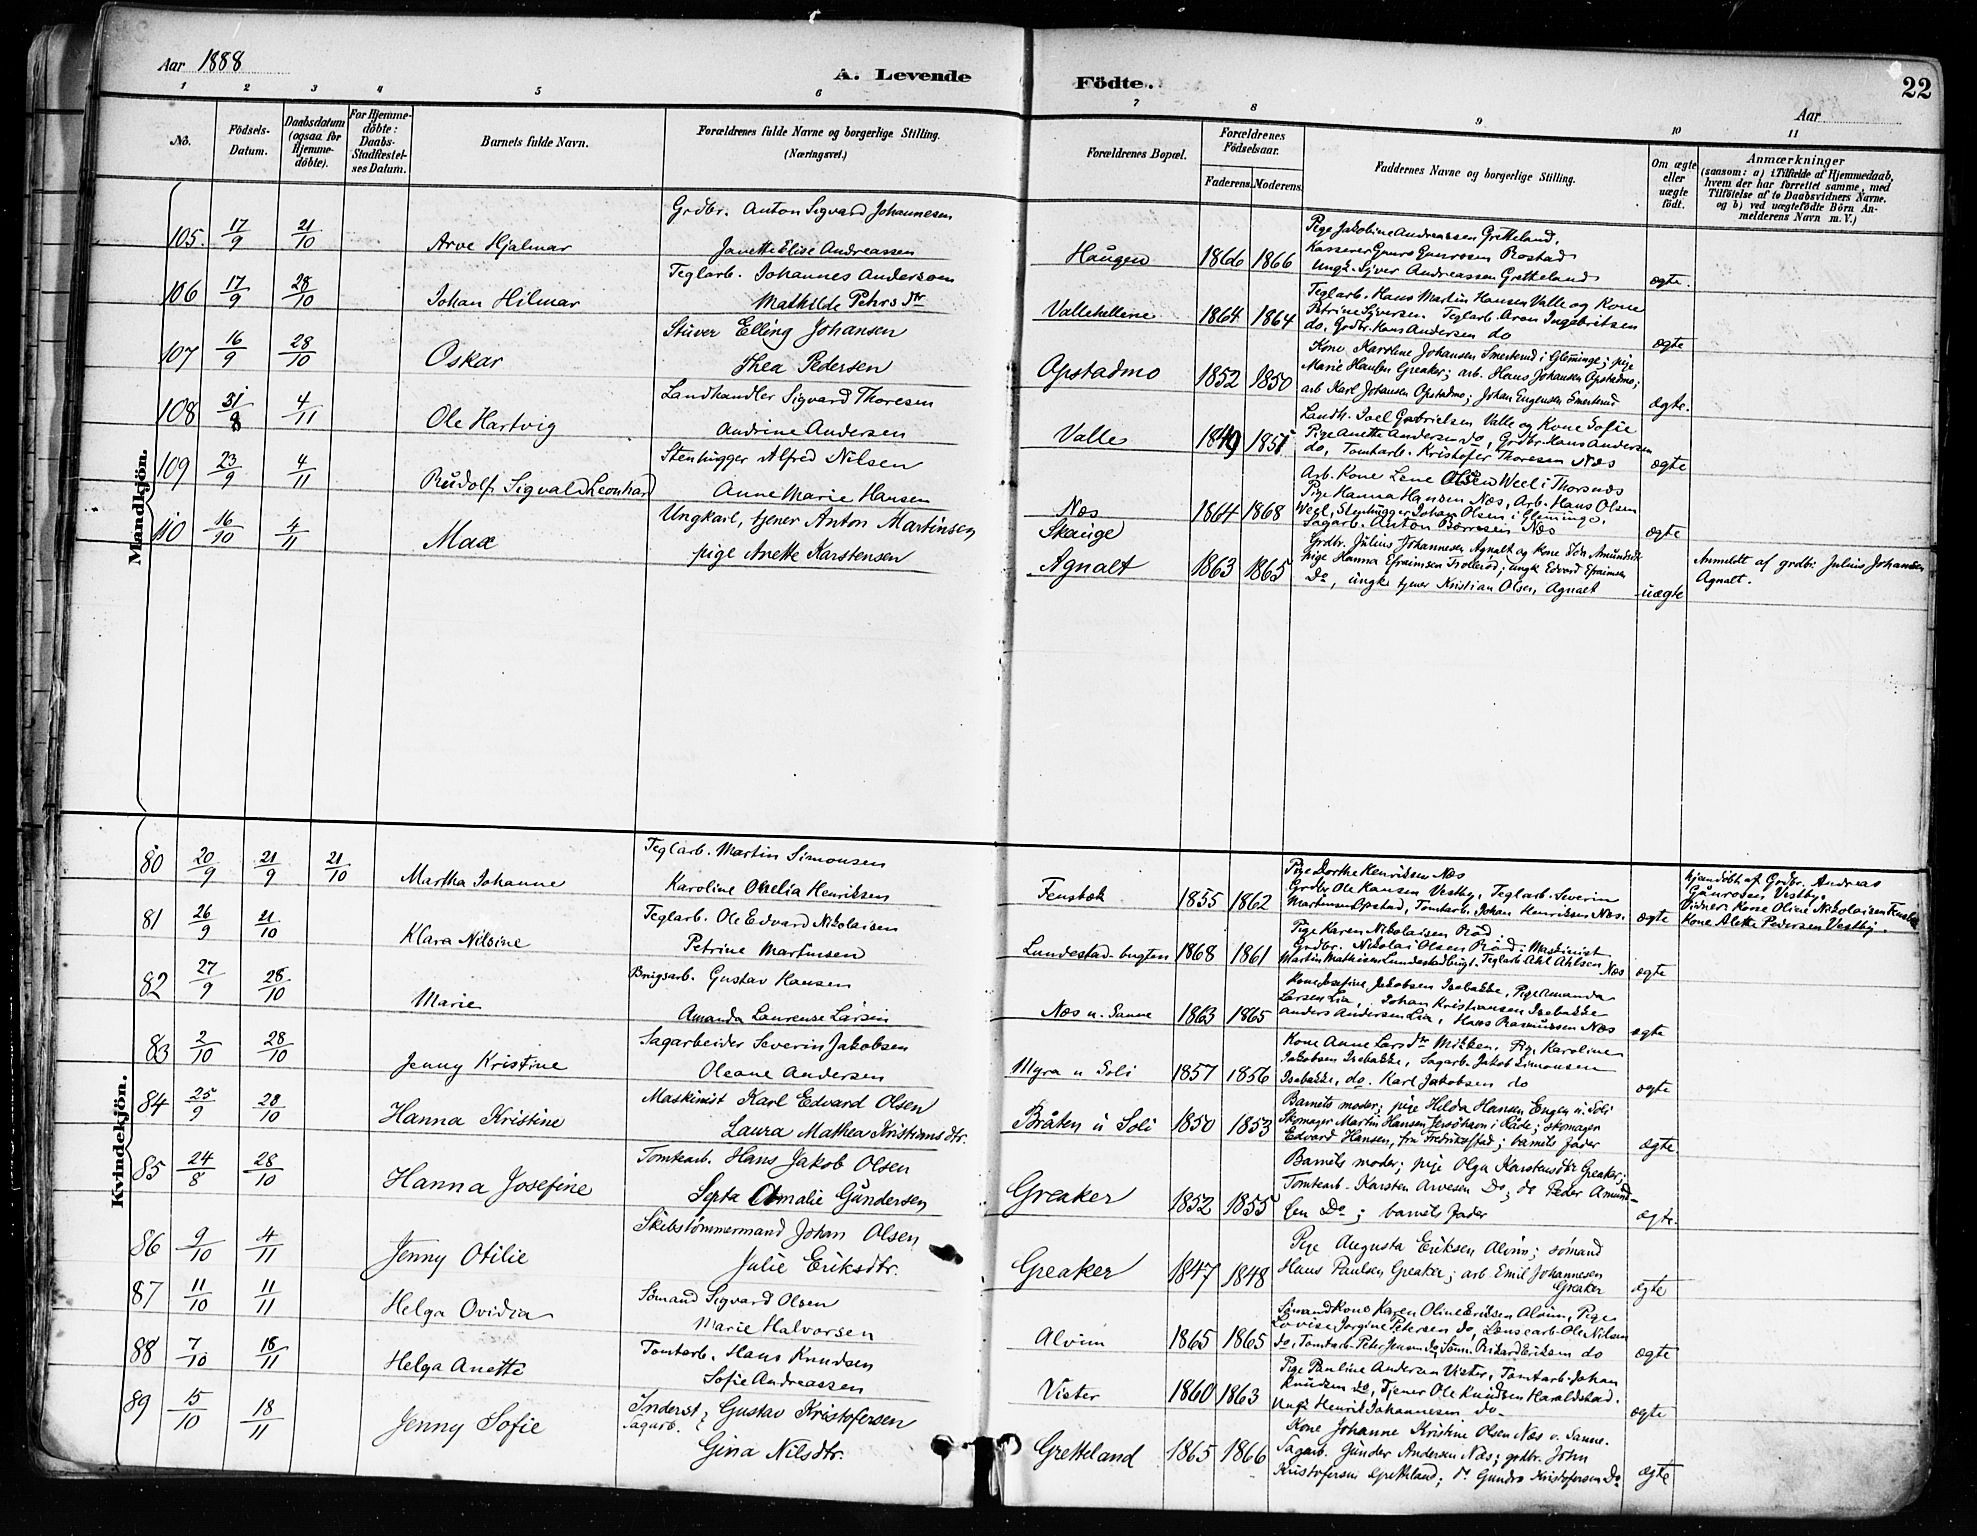 Aar 1888
A. Levende
Födte.
22
Aar
1 2 3 4 5 6 7 8 9 10 11
No.
Födsels-Datum.
Daabsdatum (ogsaa for Hjemme-döbte).
For Hjemme-döbte: Daabs-Stadfæstel-ses Datum.
Barnets fulde Navn.
Forældrenes fulde Navne og borgerlige Stilling.
(Næringsvei.)
Forældrenes Bopæl.
Forældrenes Födselsaar.
Faderens. Moderens.
Faddernes Navne og borgerlige Stilling.
Om ægte eller uægte födt.
Anmærkninger
(saasom: a) i Tilfælde af Hjemmedaab,
hvem der har forrettet samme, med
Tilföielse af to Daabsvidners Navne.
og b) ved uægtefödte Börn An-
melderens Navn m. V.)
Mandkjön.
105. 17/9 21/10 Arve Hjalmar
Grdbr. Anton Sigvard Johannesen
Janette Elise Andreassen
Haugen 1866 1866
Pige Jakobine Andreassen Gretteland,
Rostad
Ungk. Syver Andreassen Gretteland
ægte.
106 17/9 28/10 Johan Hilmar
Teglarb. Johannes Anderson
Mathilde Pehrs dtr
Vallehellene 1864 1864
Teglarb. Hans Martin Hansen Valle og Kone
Petrine Syversen. Teglarb. Aron Ingebritsen
do, Grdbr. Hans Andersen do
ægte
107 16/9 28/10 Oskar
Stuver Elling Johansen
Thea Pedersen
Opstadmo 1852 1850
Kone Karoline Johansen Smertend i Glemminge; pige
Marie Hansen Greaker; arb. Hans Johansen Opstadmo;
arb Karl Johansen Opstadmo; Johan Eugensen Smertend
ægte.
108 31/8 4/11 Ole Hartvig
Landhandler Sigvard Thoresen
Andrine Andersen
Valle 1849 1851
Landh. Joel Gabrielsen Valle og Kone Sofie
Pige Anette Andersen do, Grdbr. Hans Andersen
do, Tomtarb. Kristofer Thoresen Næs
ægte
109 23/9 4/11 Rudolf Sigvald Leonhard
Stenhugger Alfred Nilsen
Anne Marie Hansen
Næs
Skauge 1864 1868
Arb. Kone Lene Olsen Weel i Thorsnæs
Pige Hanna Hansen Næs, Arb. Hans Olsen
Weel, Stenhugger Johan Olsen i Glemminge,
Sagarb. Anton Borresen Næs
ægte
110 16/10 4/11 Max
Ungkarl, tjener Anton Martinsen
pige Anette Karstensen
Agnalt 1863 1865
Grdbr. Julius Johannesen Agnalt og Kone
pige Hanna Efraimsen; ungk Edvard Efraimsen
Do, ungk tjener Kristian Olsen, Agnalt
uægte
Anmeldt af grdbr. Julius Johannesen
Agnalt.
Kvindekjön.
80 20/9 21/9 21/10 Martha Johanne
Teglarb. Martin Simonsen
Karoline Ohelia Henriksen
Fenstæk 1855 1862
Pige Dorthe Henriksen Næs
Grdbr Ole Hansen Vestby, Teglarb. Severin
Martinsen Opstad, Tomtarb. Johan Henriksen Næs.
ægte
hjemdöbt af Grdbr. Andreas
Gunrosen Vestby.
Vidner: Kone Oline Nikolaisen
Kone Alette Pedersen Vestby.
81 26/9 21/10 Klara Nilsine
Teglarb. Ole Edvard Nikolaisen
Petrine Martinsen
Lundestad-bugten 1868 1861
Pige Karen Nikolaisen Röd.
Grdbr. Nikolai Olsen Röd. Maskinist
Martin Mathisen Lundestadbugt. Teglarb Ahl Ahlsen Næs
ægte
82 27/9 28/10 Marie
Brugsarb. Gustav Hansen
Amanda Laurense Larsen
Næs u. Sanne 1863 1865
Kone Josefine Jakobsen Isebakke, Pige Amanda
Larsen Lia, Johan Kristiansen Isebakke
Anders Andersen Lia, Hans Rasmussen Næs
ægte
83 2/10 28/10 Jenny Kristine
Sagarbeider Severin Jakobsen
Oleane Andersen
Myra u Soli 1857 1856
Kone Anne Lars dtr Mökken. Pige Karoline
Jakobsen Isebakke, Sagarb. Jakob Simonsen
Isebakke, do. Karl Jakobsen do
ægte
84 25/9 28/10 Hanna Kristine
Maskinist Karl Edvard Olsen
Laura Mathea Kristians dtr.
Bråten u Soli 1850 1853
Barnets moder; pige Hilda Hansen Engen u. Soli
Skomager Martin Hansen i Råde; skomager
Edvard Hansen, fra Fredrikstad; barnets fader
ægte
85 24/8 28/10 Hanna Josefine
Tomtearb. Hans Jakob Olsen
Septa Amalie Gundersen
Greaker 1852 1855
Barnets moder; pige Olga Karstensdtr Greaker;
Tomtearb. Karsten Arvesen Do; do Peder Amund-
sen Do; barnets fader
ægte.
86 9/10 4/11 Jenny Otilie
Skibstömmermand Johan Olsen
Julie Eriksdtr.
Greaker 1847 1848
Pige Augusta Eriksen Alvim; sömand
Hans Paulsen Greaker; arb Emil Johannesen
Greaker
ægte
87 11/10 11/11 Helga Ovidia
Sömand Sigvard Olsen
Marie Halvorsen
Alvim 1865 1865
Sömand Kone Karen Oline Eriksen Alvim, Pige
Lovise Jorgine Petersen do, Lænsearb. Ole Nilsen
do, Tomtarb. Peter Jensen do, Sömn. Rikard Eriksen do
ægte
88 7/10 18/11 Helga Anette
Tomtarb. Hans Knudsen
Sofie Andreassen
Vister 1860 1863
Pige Pauline Andersen Vister, Tomtarb. Johan
Knudsen do, Tjener Ole Knudsen Haraldstad.
Ungk Henrik Johannesen do.
ægte
89 15/10 18/11 Jenny Sofie
Inderst, Sagarb. Gustav Kristofersen
Gina Nilsdtr.
Gretteland 1865 1866
Kone Johanne Kristine Olsen Næs v. Sanne.
Sagarb. Gunder Andersen Næs; grdbr. John
Kristofersen Gretteland; do Gundro Kristofersen Do.
ægte